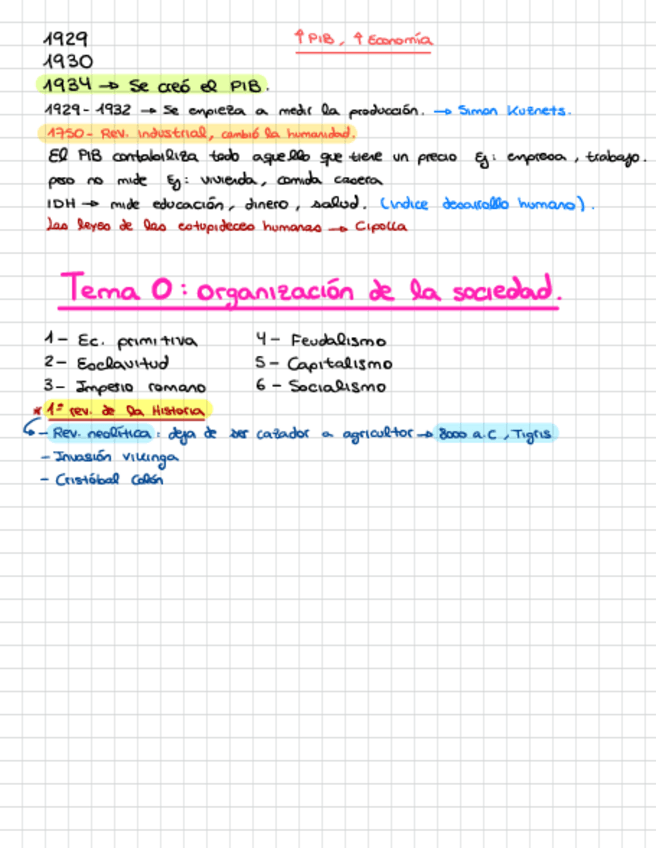 1929
↑ PIB, ↑ Economía
1930
1934 → Se creó el PIB.
1929-1932 → Se empieza a medir la producción. → Simon Kuznets.
1750- Rev. Industrial, cambió la humanidad.
El PIB contabiliza todo aquello que tiene un precio Ej: empresa, trabajo.
pero no mide Ej: vivienda, comida casera
IDH → mide educación, dinero, salud. (índice desarrollo humano).
Las leyes de las estupideces humanas → Cipolla
Tema 0: organización de la sociedad.
1- Ec. primitiva
2- Esclavitud
3- Imperio romano
4- Feudalismo
5- Capitalismo
6- Socialismo
* 1ª rev. de la Historia
- Rev. neolítica: deja de ser cazador a agricultor → 8000 a.C, Tigris
- Invasión vikinga
- Cristóbal Colón